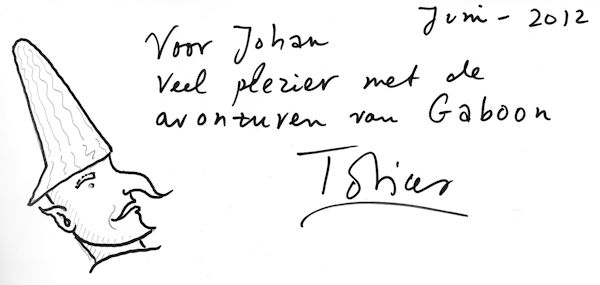 Juni - 2012
Voor Johan
veel plezier met de
avonturen van Gaboon
Tobias